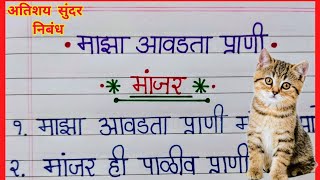 अतिशय सुंदर
निबंध
माझा आवडता प्राणी
मांजर
१. माझा आवडता प्राणी
२. मांजर ही पाळीव प्राणी